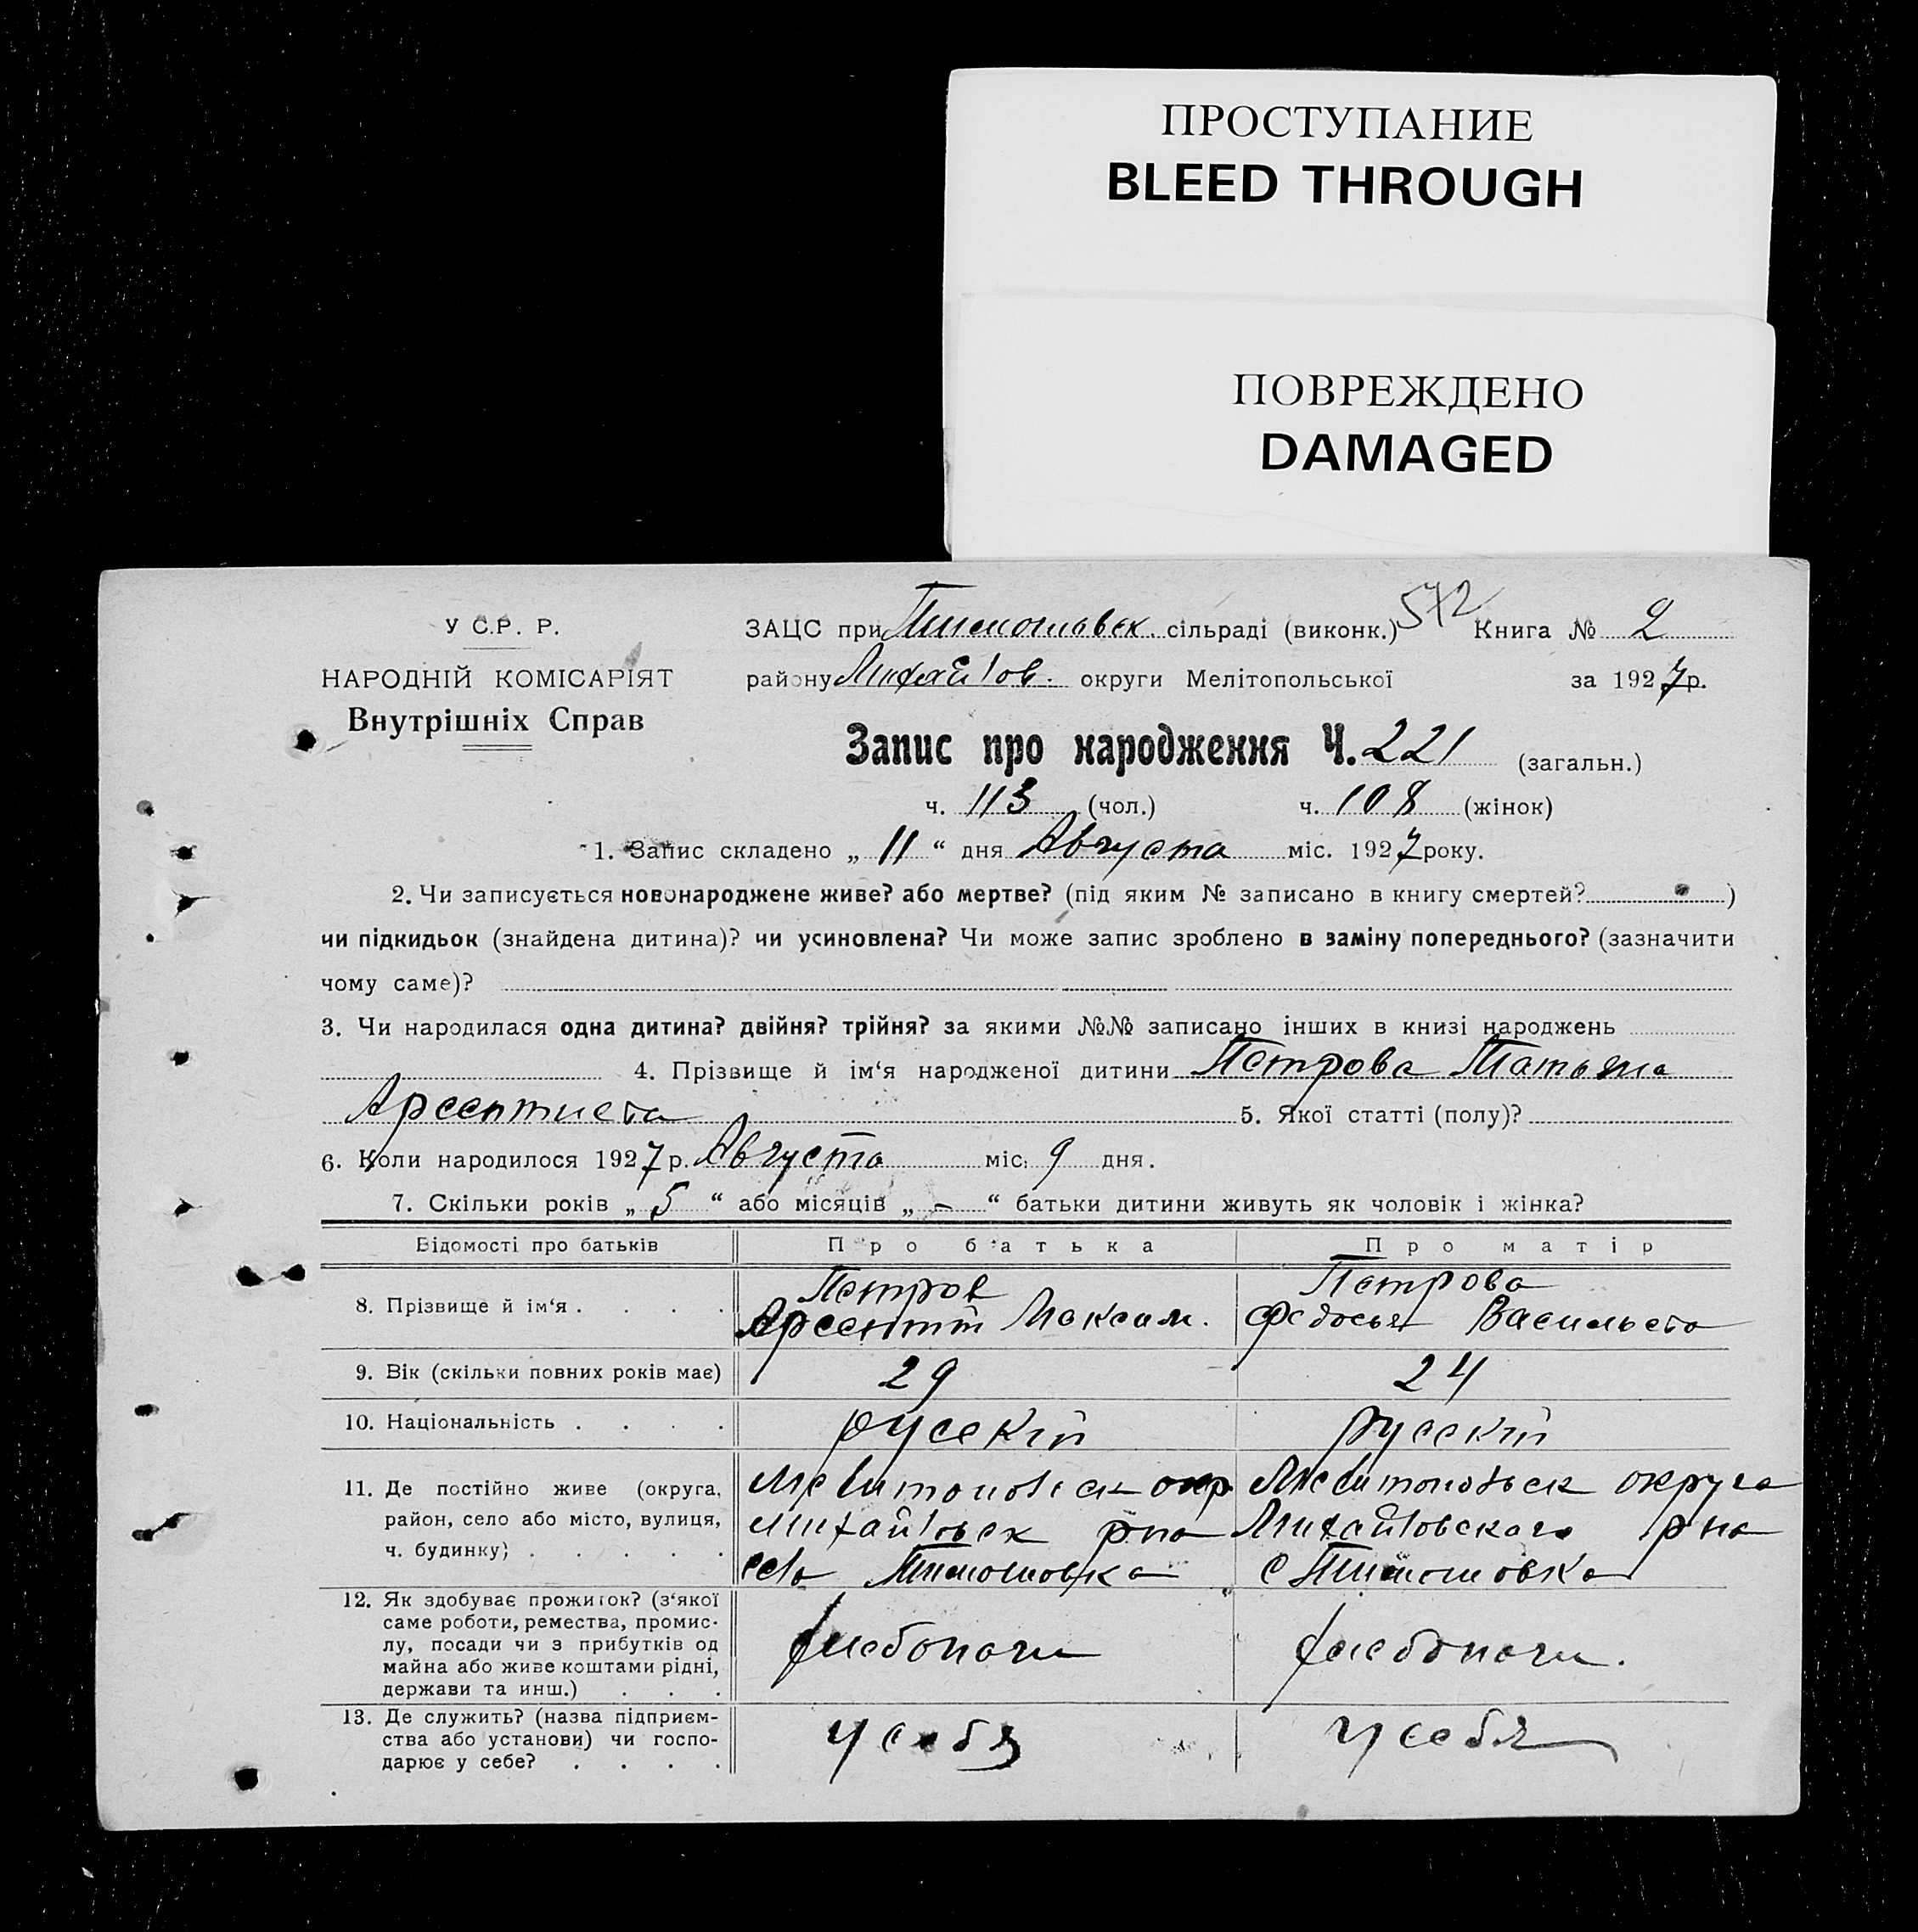 ПРОСТУПАНИЕ
BLEED THROUGH
ПОВРЕЖДЕНО
DAMAGED
572
У С.Р. Р.
ЗАЦС при Тимошовск. сільраді (виконк.) Книга № 2
НАРОДНІЙ КОМІСАРІЯТ
району Михайлов. округи Мелітопольської за 1927 р.
Внутрішніх Справ
Запис про народження Ч. 221 (загальн.)
ч. 113 (чол.) ч. 108 (жінок)
1. Запис складено „ 11 “ дня Августа міс. 1927 року.
2. Чи записується новонароджене живе? або мертве? (під яким № записано в книгу смертей? )
чи підкидьок (знайдена дитина)? чи усиновлена? Чи може запис зроблено в заміну попереднього? (зазначити
чому саме)?
3. Чи народилася одна дитина? двійня? трійня? за якими №№ записано інших в книзі народжень
4. Прізвище й ім‘я народженої дитини Петрова Татьяна
Арсентиева 5. Якої статті (полу)?
6. Коли народилося 1927 р. Августа міс. 9 дня.
7. Скільки років „ 5 “ або місяців „ - “ батьки дитини живуть як чоловік і жінка?
Відомості про батьків Про батька Про матір
8. Прізвище й ім‘я . . . . Петров Арсентій Максим. Петрова Федосья Васильева
9. Вік (скільки повних років має) 29 24
10. Національність . . . . русскій русскій
11. Де постійно живе (округа, Мелитопольск окр. Мелитопольск округа
район, село або місто, вулиця, Михайловск рна Михайловскаго рна
ч. будинку) . . . . . село Тимошовка с Тимошовка
12. Як здобуває прожиток? (з‘якої
саме роботи, ремества, промис-
лу, посади чи з прибутків од хлебопаш хлебопаш.
майна або живе коштами рідні,
держави та инш.) . . .
13. Де служить? (назва підприєм-
ства або установи) чи госпо- у себя у себя
дарює у себе? . . . .